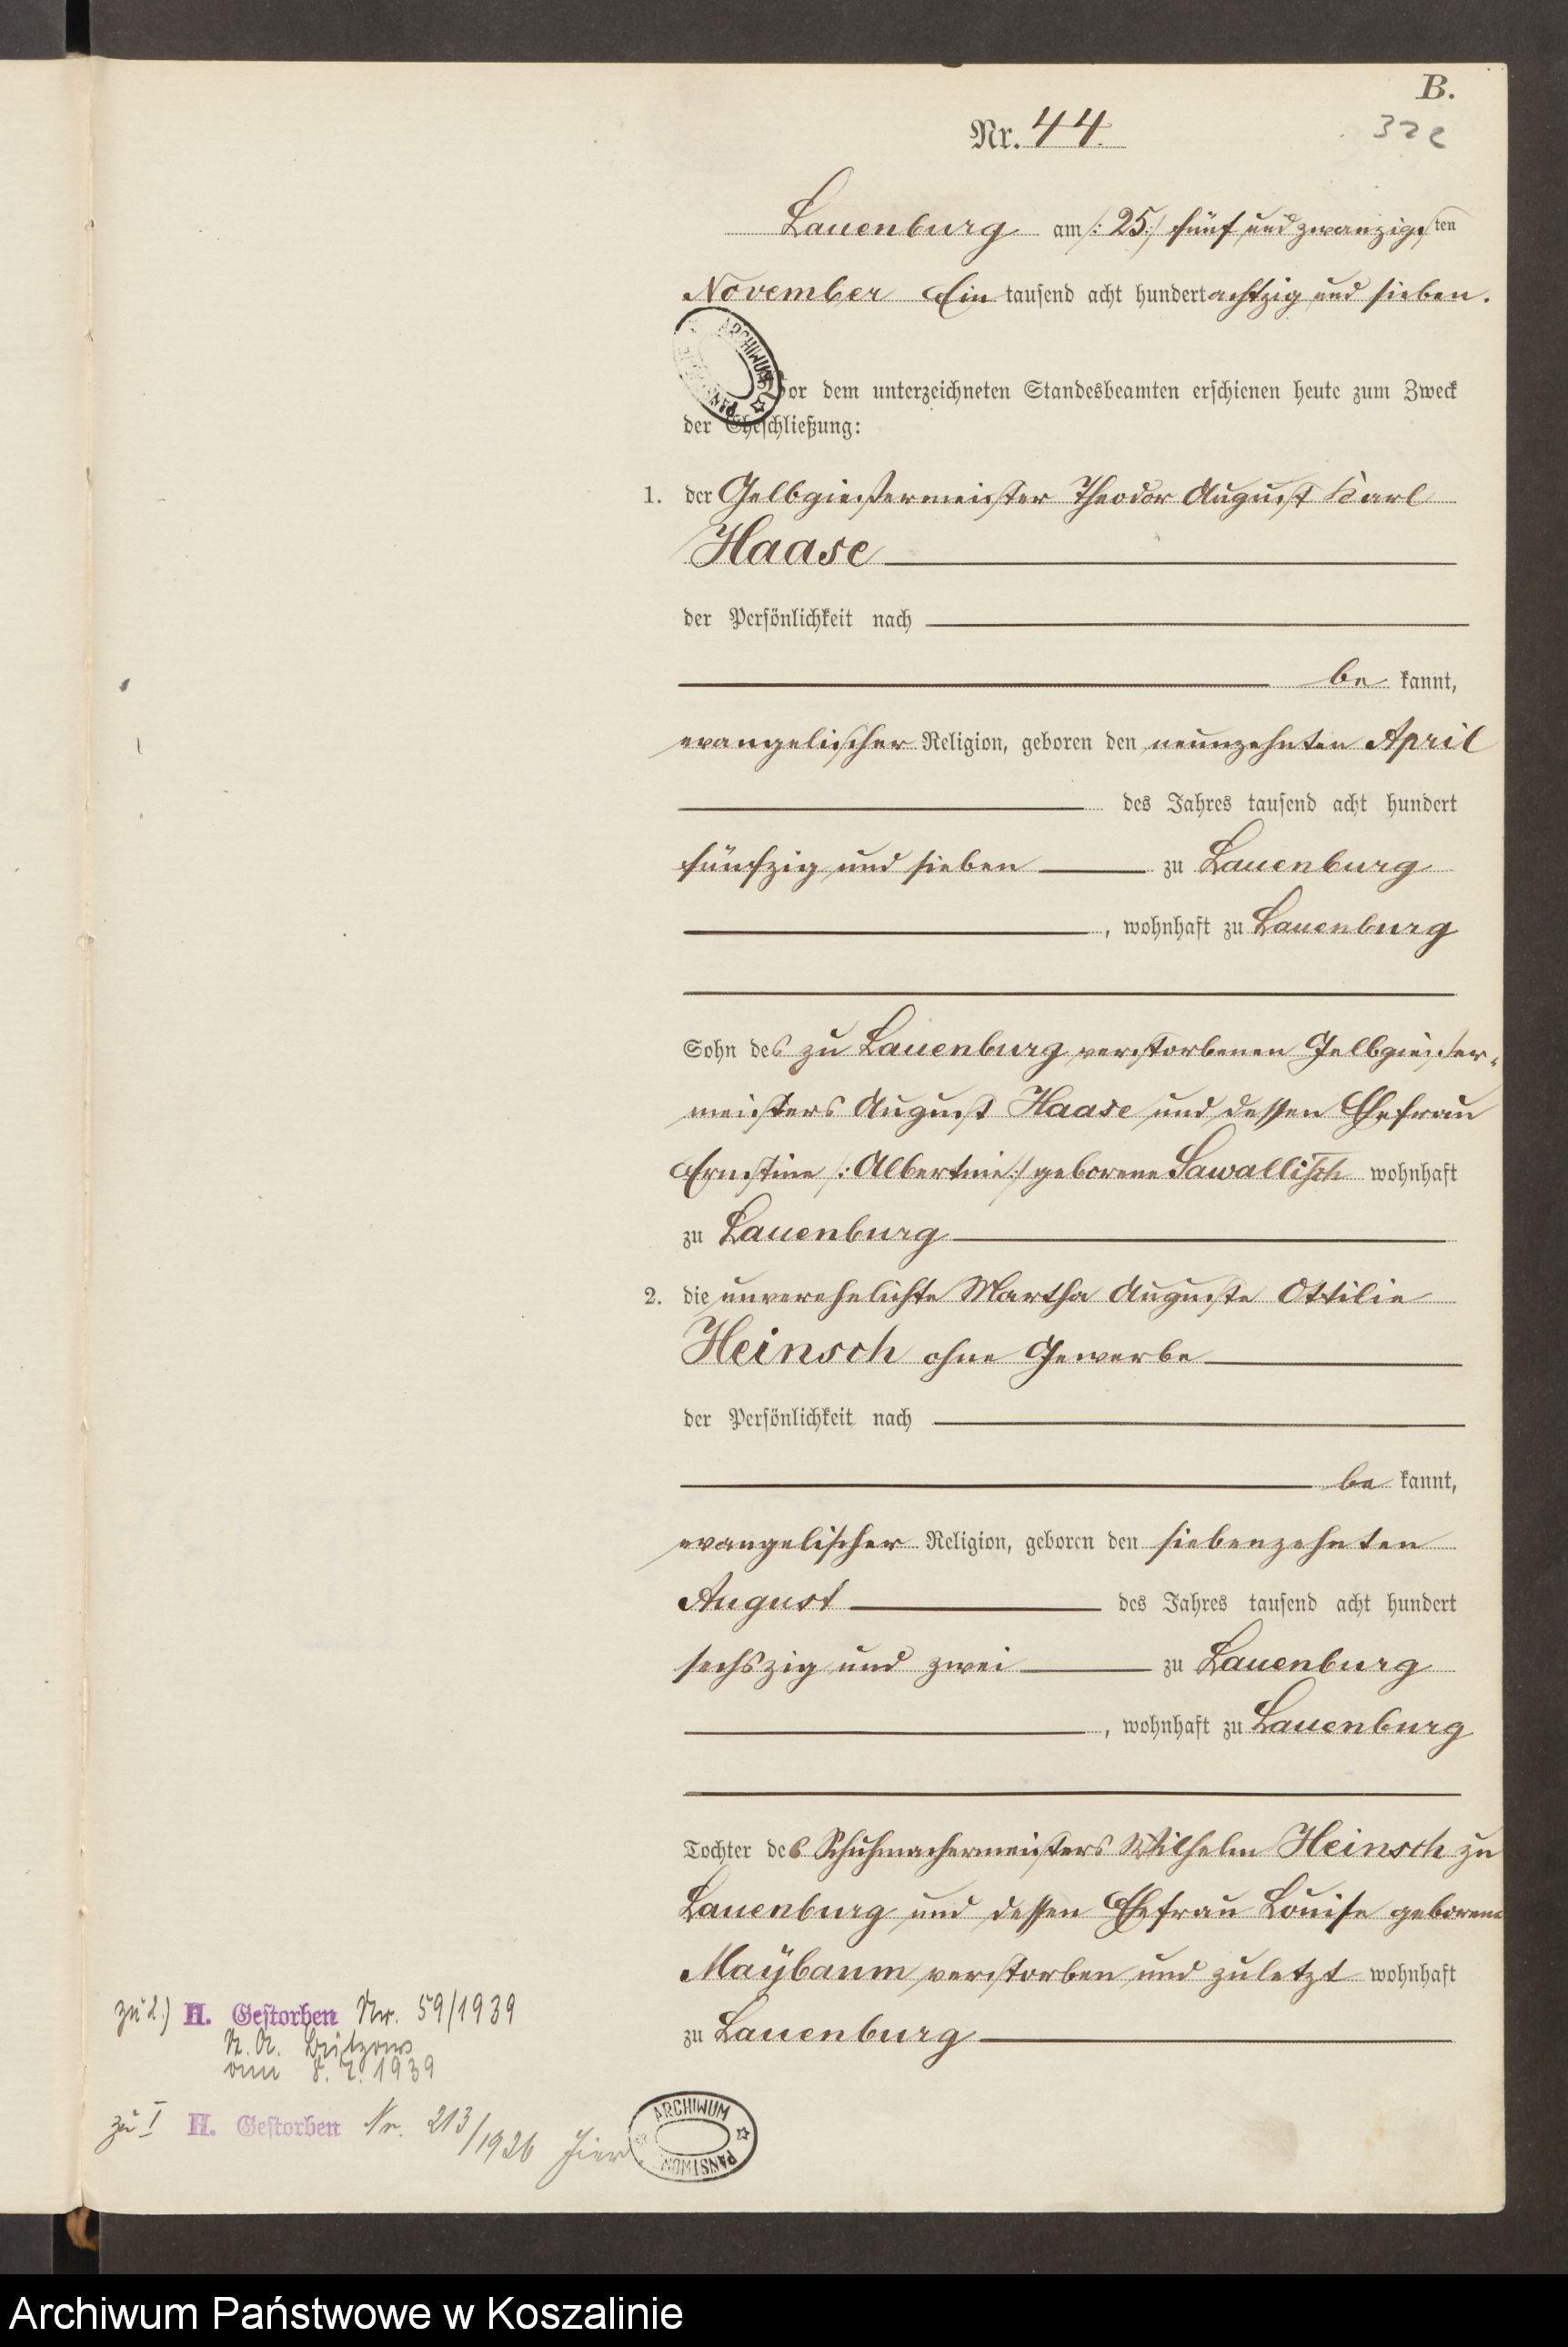 B.
Nr. 44.
322
Lauenburg am /: 25 :/ fünf und zwanzigsten
November Ein tausend acht hundert achtzig und sieben.
Vor dem unterzeichneten Standesbeamten erschienen heute zum Zweck
der Eheschließung:
1. der Gelbgießermeister Theodor August Karl
Haase
der Persönlichkeit nach
be kannt,
evangelischer Religion, geboren den neunzehnten April
des Jahres tausend acht hundert
fünfzig und sieben zu Lauenburg
, wohnhaft zu Lauenburg
Sohn des zu Lauenburg verstorbenen Gelbgießer-
meisters August Haase und dessen Ehefrau
Ernstine /: Albertine :/ geborene Sawallisch wohnhaft
zu Lauenburg
2. die unverehelichte Martha Auguste Ottilie
Heinsch ohne Gewerbe
der Persönlichkeit nach
be kannt,
evangelischer Religion, geboren den siebenzehnten
August des Jahres tausend acht hundert
sechszig und zwei zu Lauenburg
, wohnhaft zu Lauenburg
Tochter des Schuhmachermeisters Wilhelm Heinsch zu
Lauenburg und dessen Ehefrau Louise geborene
Maÿbaum verstorben und zuletzt wohnhaft
zu Lauenburg
zu 2.) H. Gestorben Nr. 59/1939
vom 1939
zu I H. Gestorben Nr. 213/1926 hier
ARCHIWUM PAŃSTWOW.
ARCHIWUM PAŃSTWOW.
Archiwum Państwowe w Koszalinie